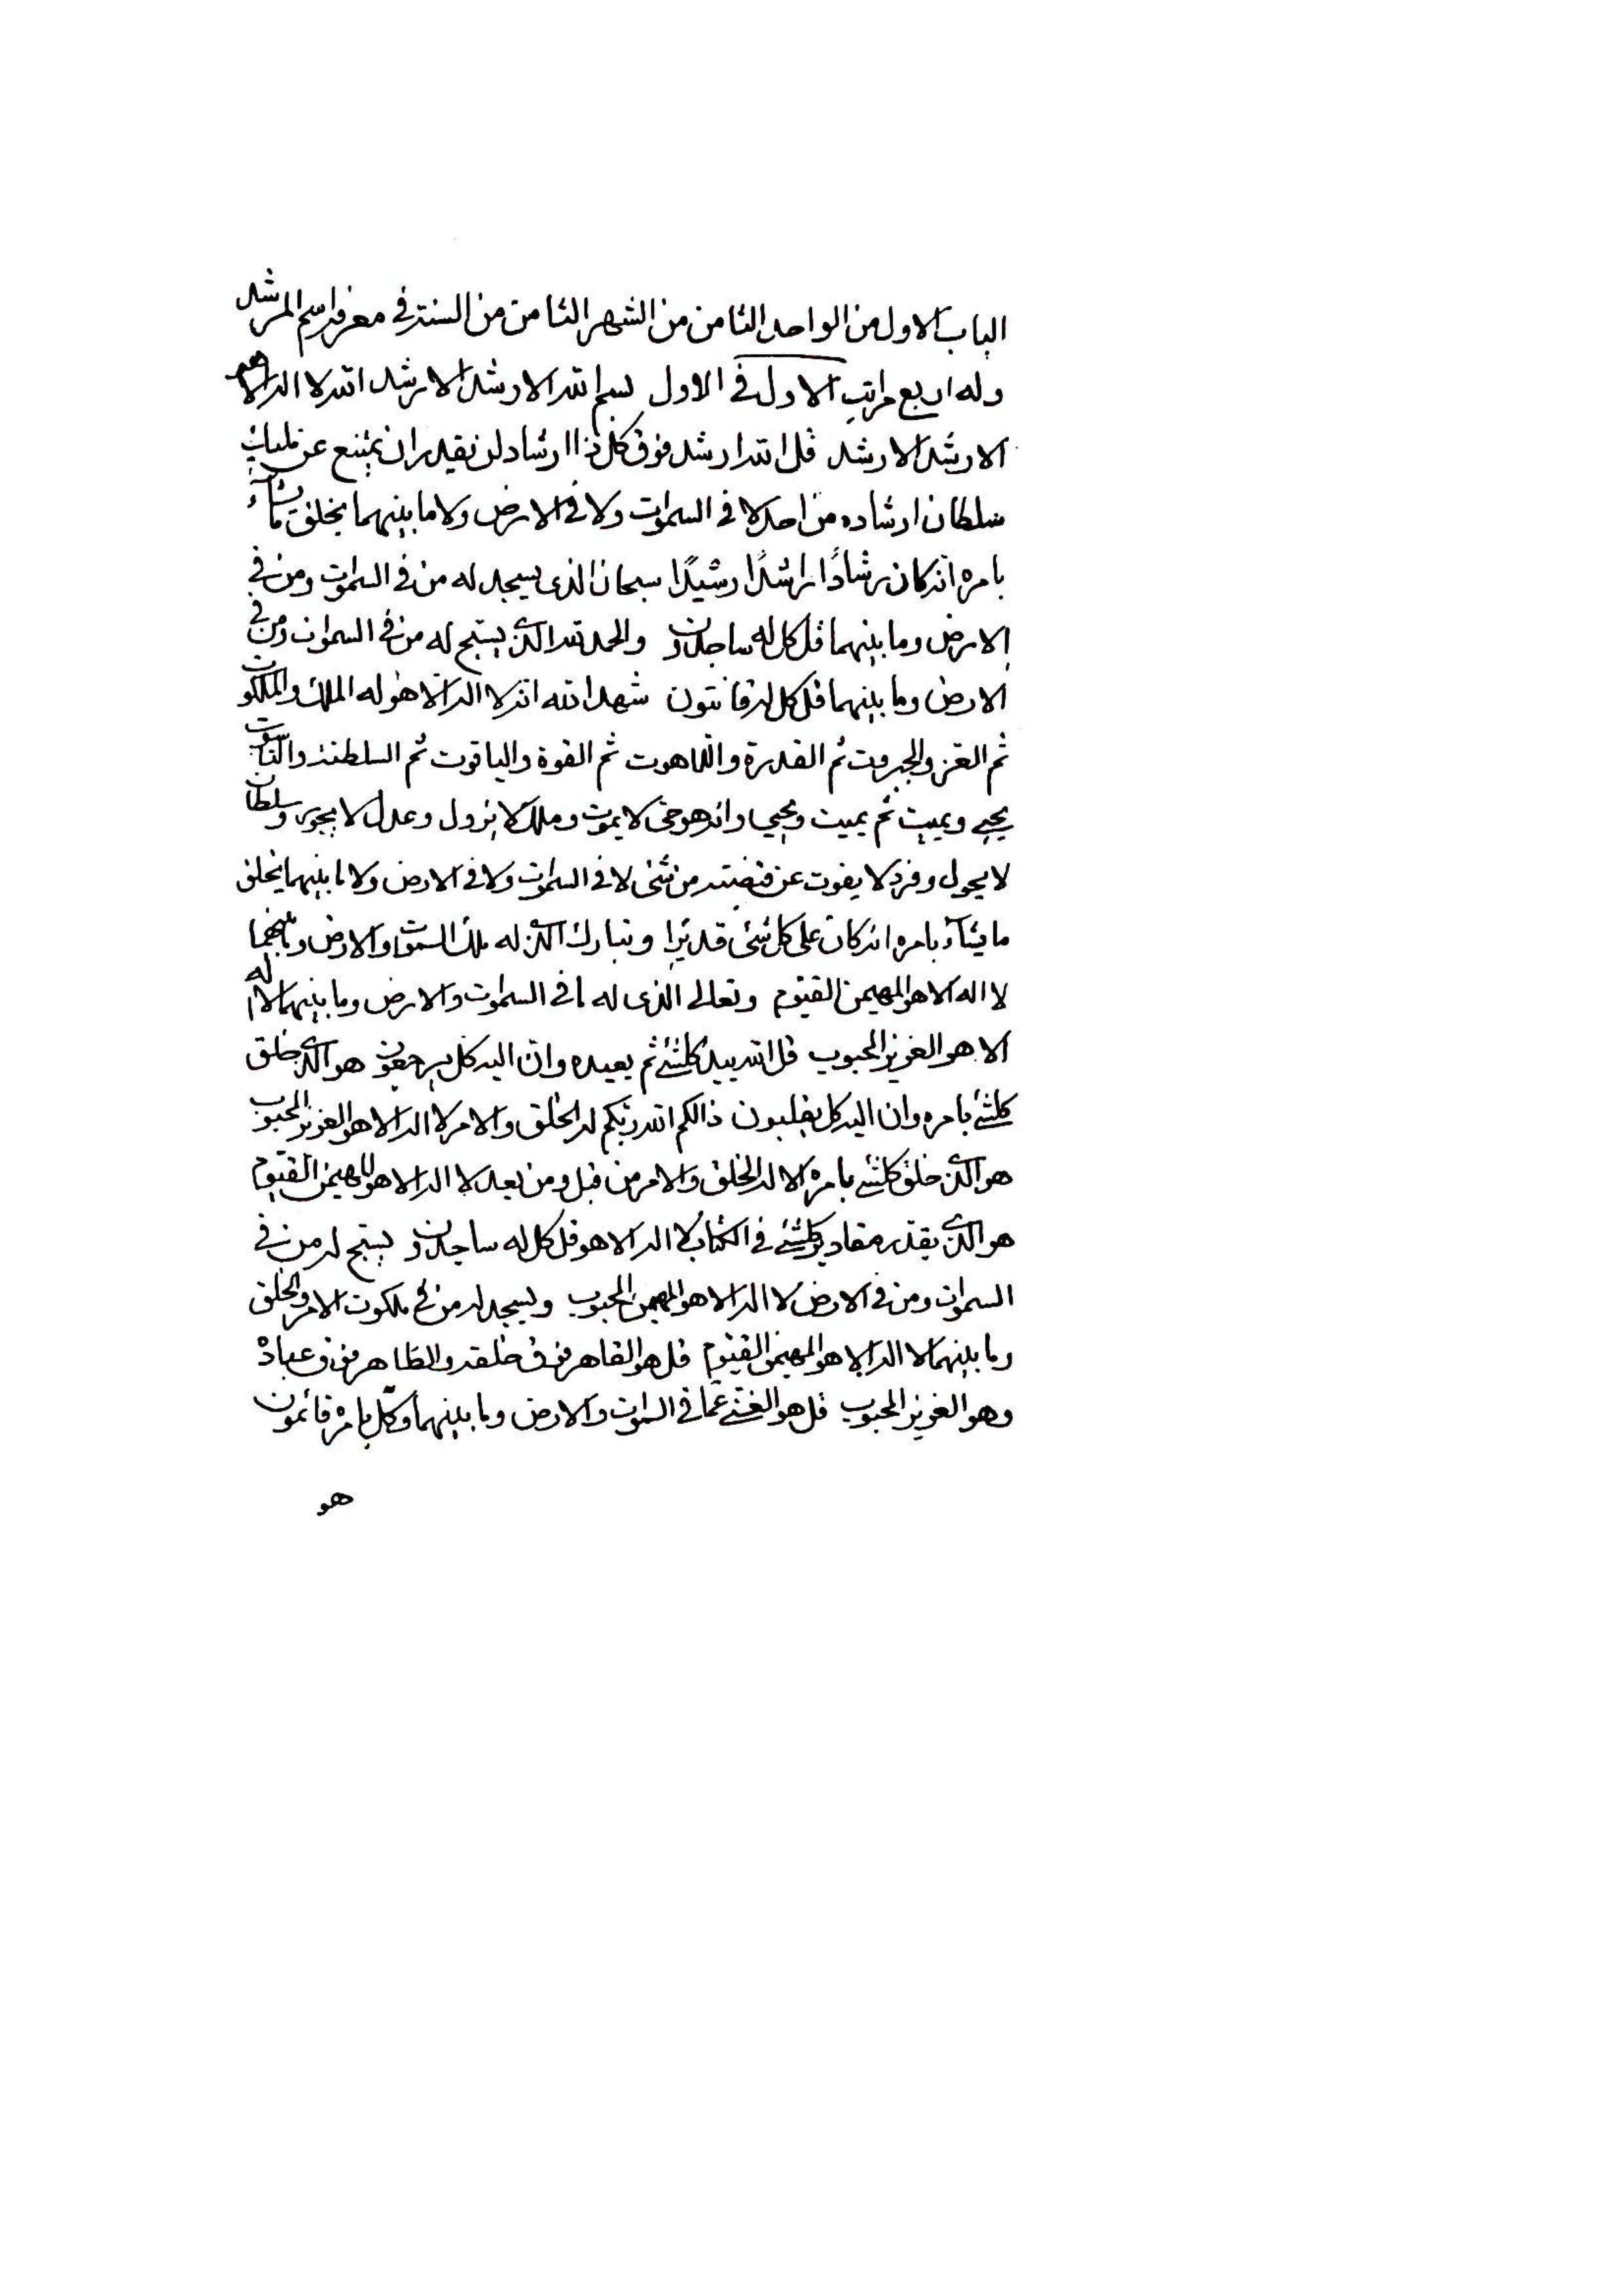 الباب الاول من الواحد الثامن من الشهر الثامن من السنة في معرفة اسم المرشد
وله اربع مراتب الاول في الاول بسم الله الارشد الارشد الله لا اله الا هو
الارشد الارشد قل الله ارشد فوق كل ذا ارشاد لن يقدر ان يمتنع عن مليك
سلطان ارشاده من احد لا في السموات ولا في الارض ولا ما بينهما يخلق ما يشآء
بامره انه كان رشادًا راشدًا رشيدًا سبحان الذي يسجد له من في السموات ومن في
الارض وما بينهما قل كل له ساجدون والحمد لله الذي يسبح له من في السموات ومن في
الارض وما بينهما قل كل له قانتون شهد الله انه لا اله الا هو له الملك والملكوت
ثم العز والجبروت ثم القدرة واللاهوت ثم القوة والياقوت ثم السلطنة والناسوت
يحيي ويميت ثم يميت ويحيي وانه هو حي لا يموت وملك لا يزول وعدل لا يجور وسلطان
لا يحول وفرد لا يفوت عن قبضته من شئ لا في السموات ولا في الارض ولا ما بينهما يخلق
ما يشآء بامره انه كان على كل شئ قديرا وتبارك الذي له ملك السموات والارض وما بينهما
لا اله الا هو المهيمن القيوم وتعالى الذي له ما في السموات والارض وما بينهما لا اله
الا هو العزيز المحبوب قل الله يبدء كلشئ ثم يعيده وان اليه كل يرجعون هو الذي خلق
كلشئ بامره وان اليه كل يقلبون ذالكم الله ربكم له الخلق والامر لا اله الا هو العزيز المحبوب
هو الذي خلق كلشئ بامره الا له الخلق والامر من قبل ومن بعد لا اله الا هو المهيمن القيوم
هو الذي يقدر مقادير كلشئ في الكتاب لا اله الا هو قل كل له ساجدون يسبح له من في
السموات ومن في الارض لا اله الا هو المهيمن المحبوب ويسجد له من في ملكوت الامر والخلق
وما بينهما لا اله الا هو المهيمن القيوم قل هو القاهر فوق خلقه والظاهر فوق عباده
وهو العزيز المحبوب قل هو الغني عما في السموات والارض وما بينهما وكل بامره قائمون
هو